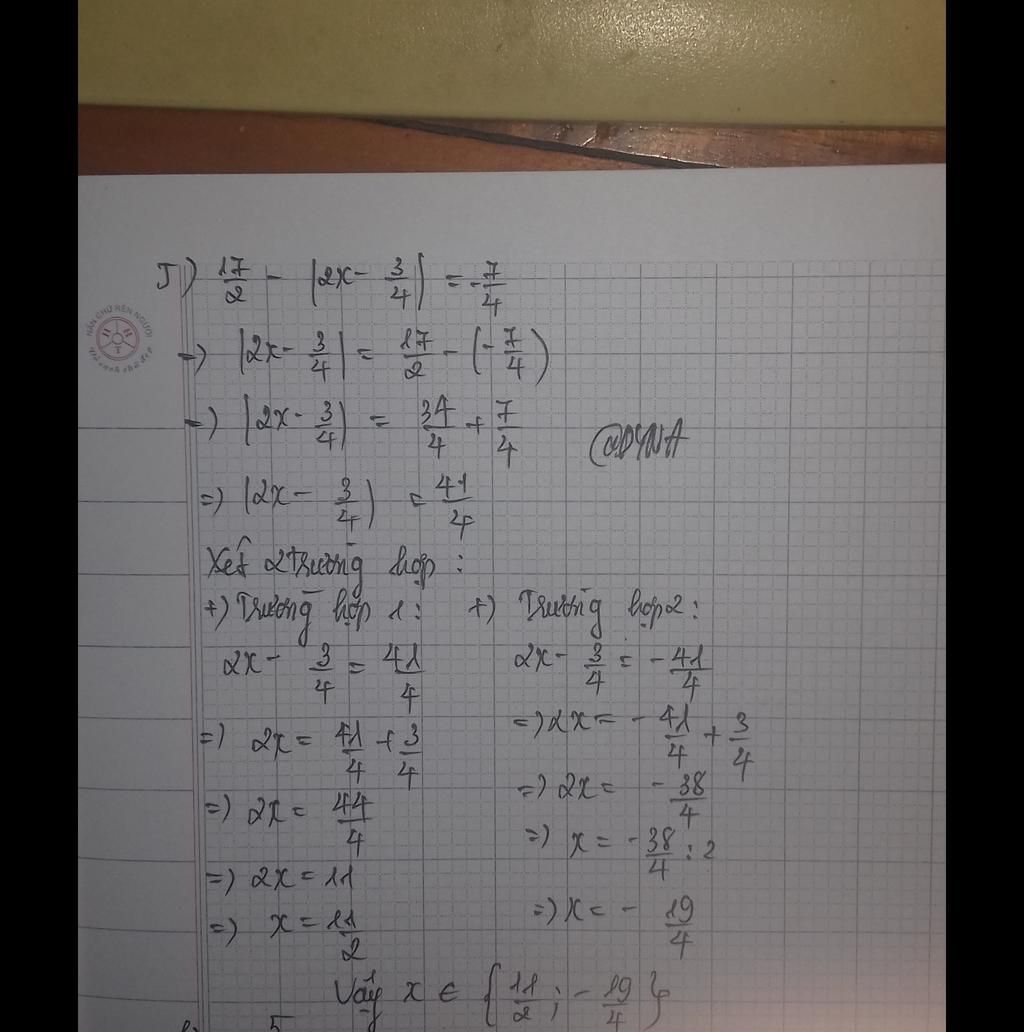 J) 17/2 - |2x - 3/4| = -7/4
=) |2x - 3/4| = 17/2 - (-7/4)
=) |2x - 3/4| = 34/4 + 7/4
@DYNA
=) |2x - 3/4| = 41/4
Xét 2 trường hợp :
+) Trường hợp 1 :
2x - 3/4 = 41/4
=) 2x = 41/4 + 3/4
=) 2x = 44/4
=) 2x = 11
=) x = 11/2
+) Trường hợp 2 :
2x - 3/4 = - 41/4
=) 2x = - 41/4 + 3/4
=) 2x = - 38/4
=) x = - 38/4 : 2
=) x = - 19/4
Vậy x ∈ {11/2 ; - 19/4}
5